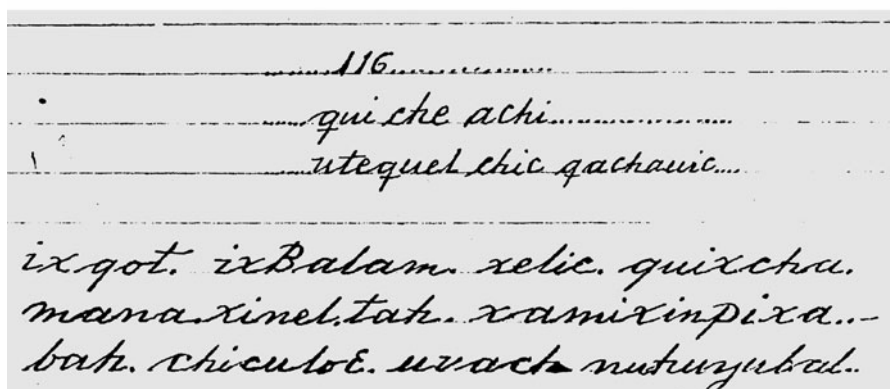 116
quiche achi
utequel chic qachauic
ix qot. ix Balam. xelic. quixcha.
mana. xinel. tah. xamixinpixa..-
bah. chiculoɛ. uvach nuhuyubal..